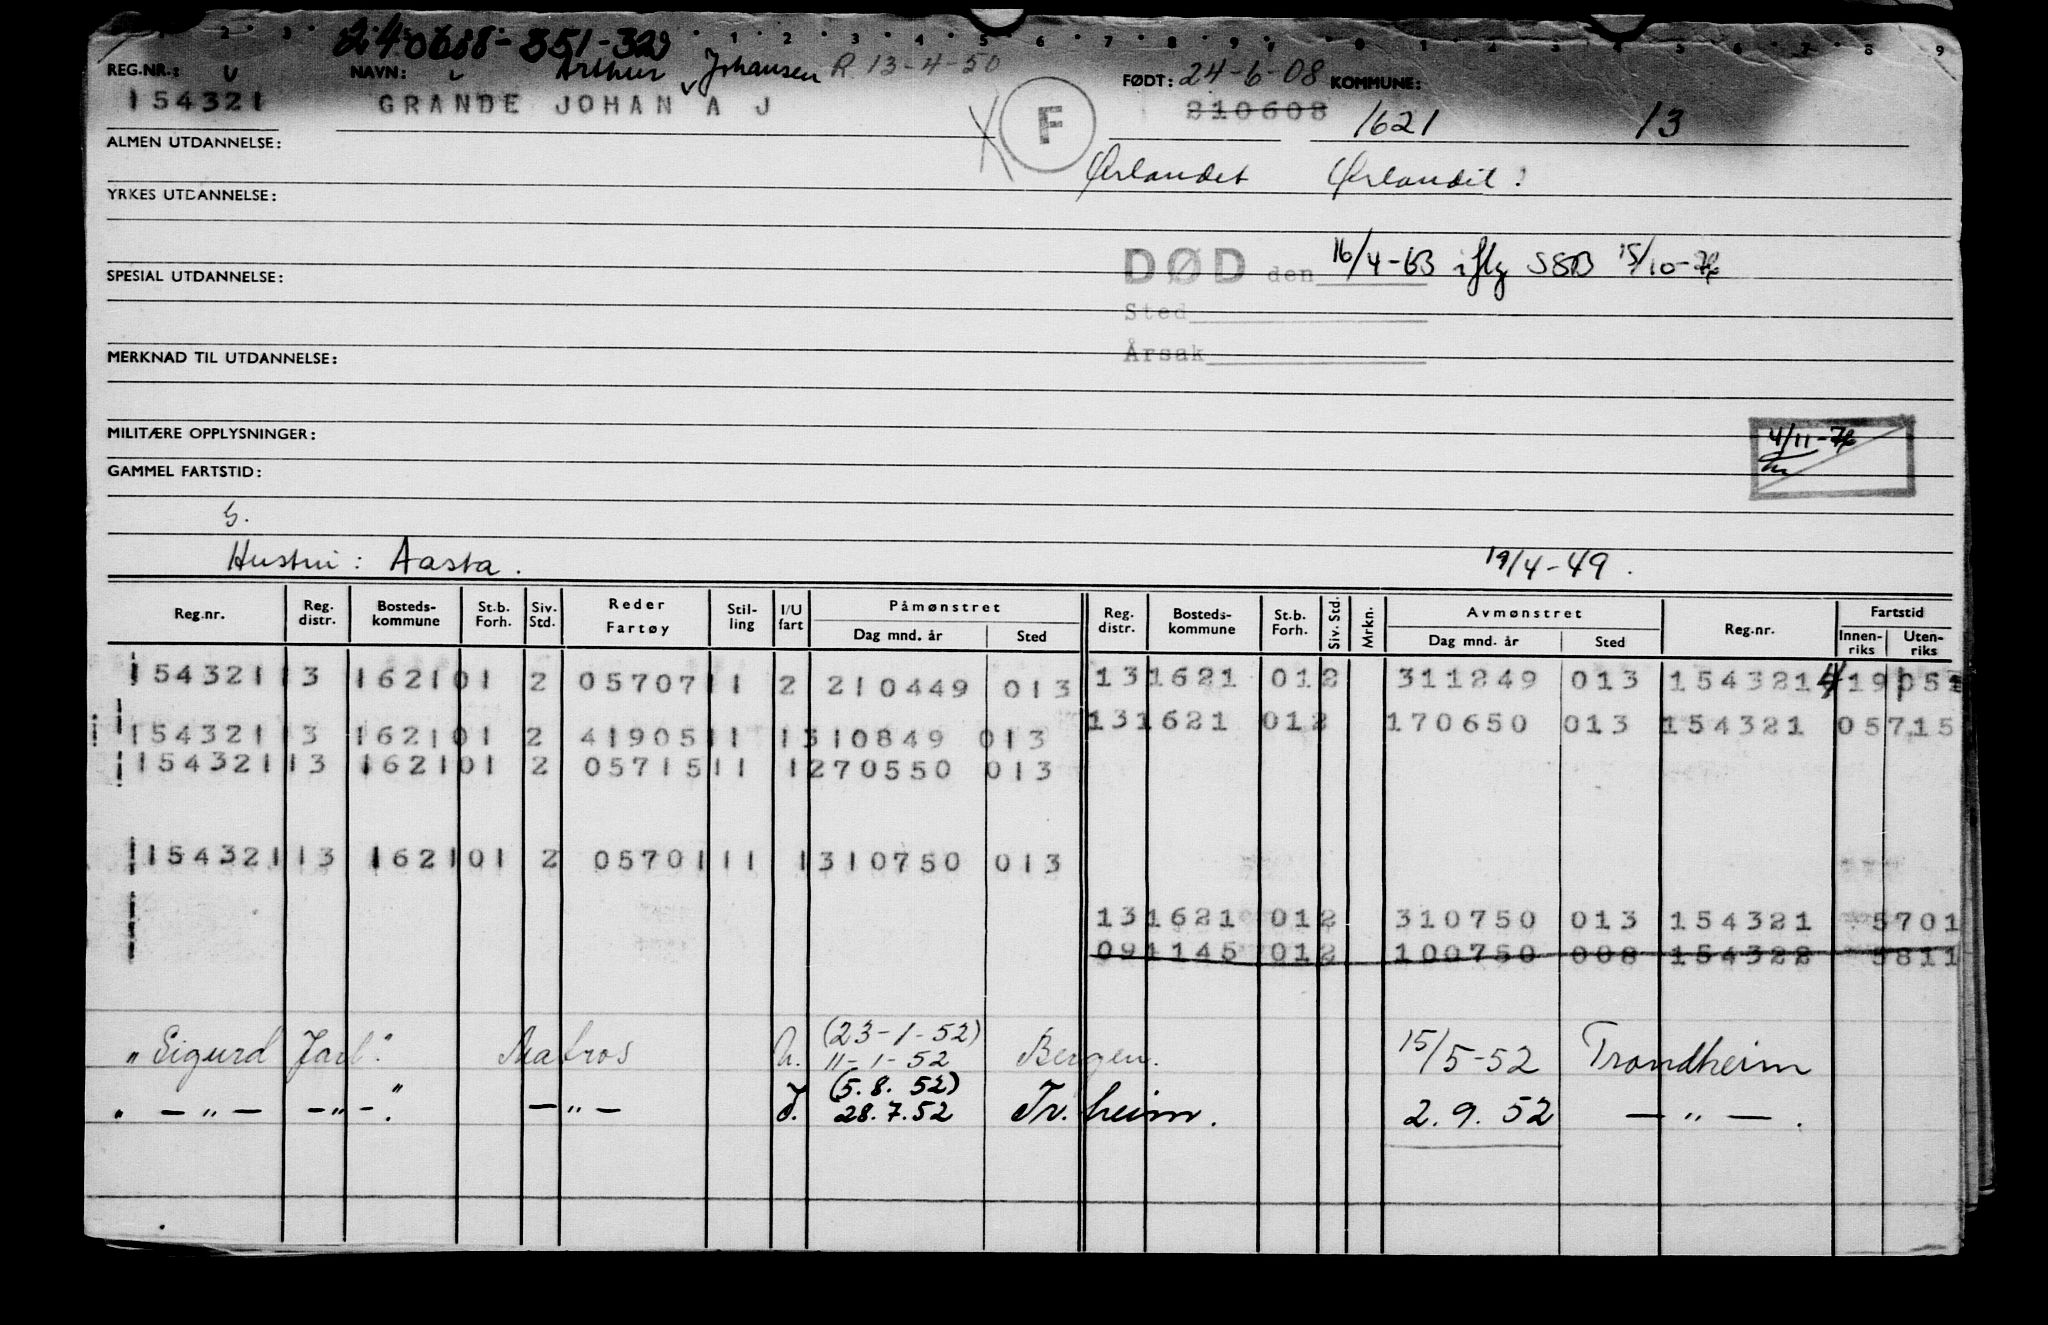 240608-351-329
REG.NR.: NAVN: Arthur Johansen R 13-4-50 FØDT: 24-6-08 KOMMUNE:
154321 GRANDE JOHAN A J F 210608 1621 13
ALMEN UTDANNELSE: Ørlandet Ørlandet
YRKES UTDANNELSE:
DØD den 16/4-63 iflg SSB 15/10-
SPESIAL UTDANNELSE:
Sted
Årsak
MERKNAD TIL UTDANNELSE:
MILITÆRE OPPLYSNINGER: 4/11-
GAMMEL FARTSTID:
G.
Hustru: Aasta. 19/4-49.
Reg.nr. Reg. distr. Bosteds-kommune St.b. Forh. Siv. Std. Reder Fartøy Stil-ling I/U fart Påmønstret Dag mnd. år Sted Reg. distr. Bosteds-kommune St.b. Forh. Siv. Std. Mrkn. Avmønstret Dag mnd. år Sted Reg.nr. Fartstid Innen-riks Uten-riks
154321 13 1621 01 2 05707 11 2 210449 013 13 1621 01 2 311249 013 154321 41905
13 1621 01 2 170650 013 154321 05715
154321 13 1621 01 2 41905 11 1 310849 013
154321 13 1621 01 2 05715 11 1 270550 013
154321 13 1621 01 2 05701 11 1 310750 013
13 1621 01 2 310750 013 154321 5701
09 1145 01 2 100750 008 154322 5811
"Sigurd Jarl". Matros U. (23-1-52) 11-1-52 Bergen. 15/5-52 Trondheim
" — " — — " — ." — " — I. (5.8.52) 28.7.52 Tr.heim. 2.9.52 — " — .